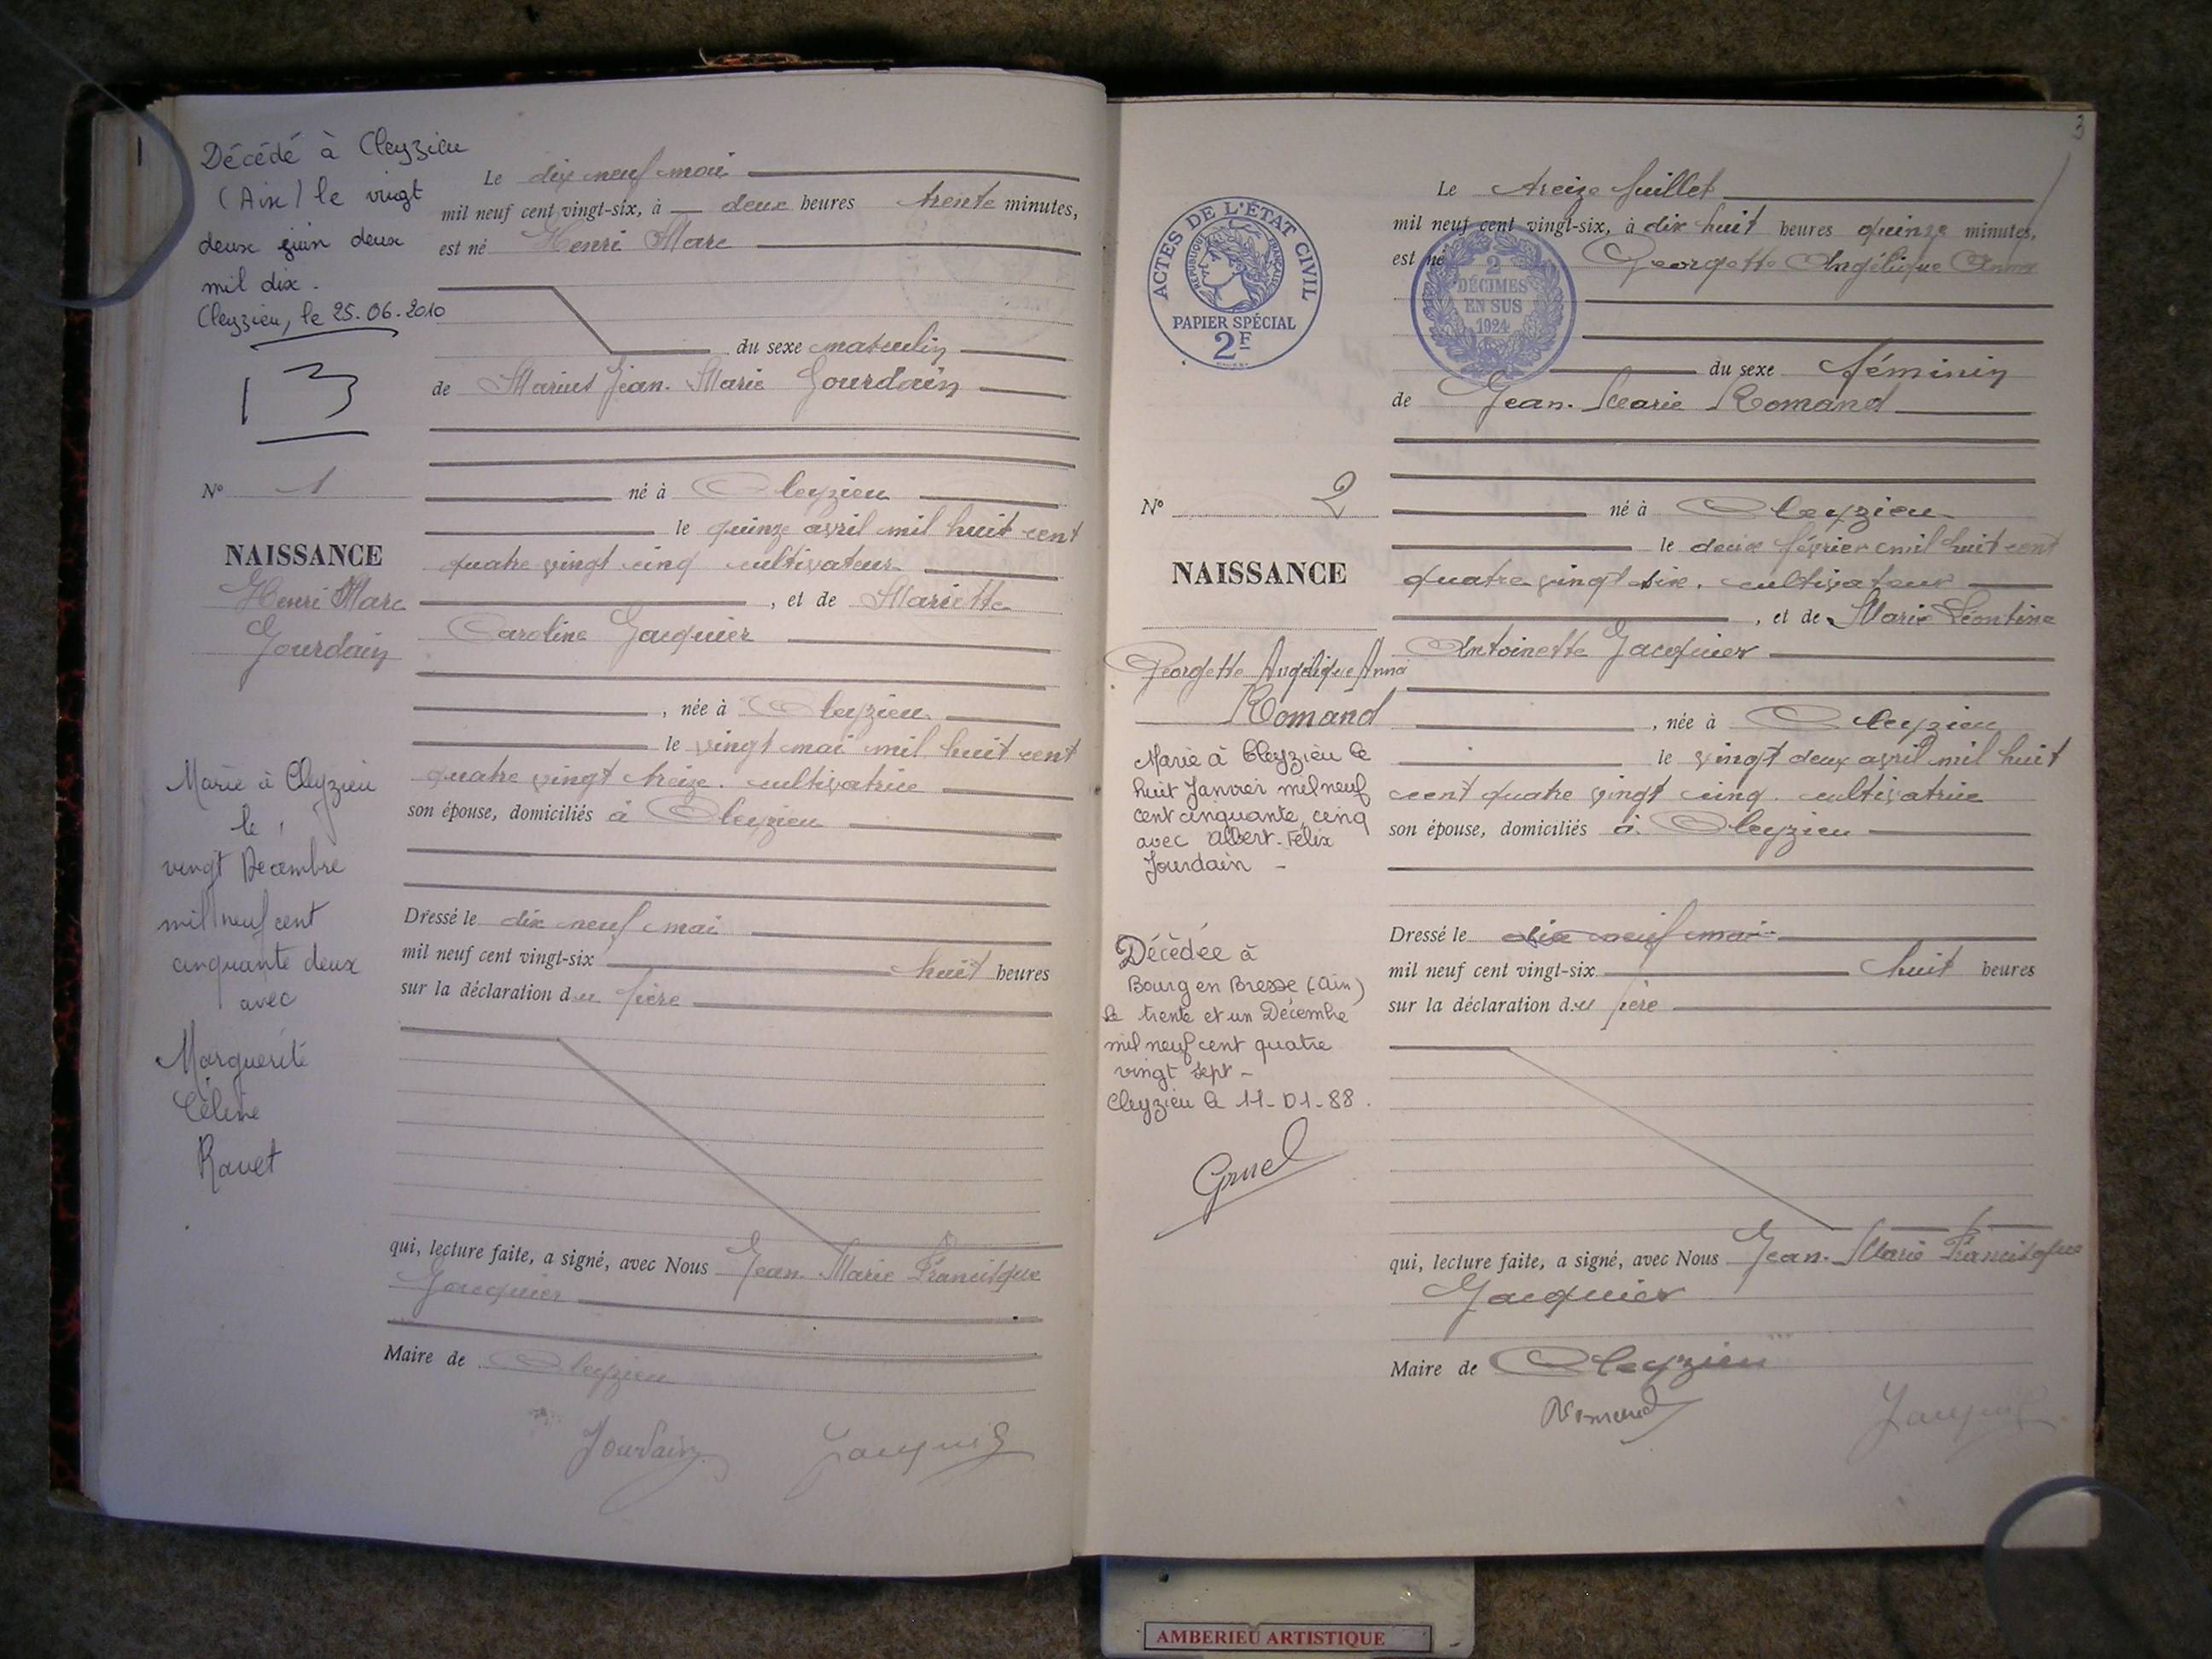 1
Décédé à Cleyzieu
(Ain) le vingt
deux juin deux
mil dix.
Cleyzieu, le 25.06.2010
N° 1
NAISSANCE
Henri Marc
Jourdain
Marié à Cleyzieu
le
vingt Décembre
mil neuf cent
cinquante deux
avec
Marguerite
Céline
Ravet
Le dix neuf mai
mil neuf cent vingt-six, à deux heures trente minutes,
est né Henri Marc
du sexe masculin
de Marius Jean-Marie Jourdain
né à Cleyzieu
le quinze avril mil huit cent
quatre vingt cinq cultivateur
, et de Mariette
Caroline Jacquier
, née à Cleyzieu
le vingt mai mil huit cent
quatre vingt treize. cultivatrice
son épouse, domiciliés à Cleyzieu
Dressé le dix neuf mai
mil neuf cent vingt-six huit heures
sur la déclaration du père
qui, lecture faite, a signé, avec Nous Jean-Marie Francisque
Jacquier
Maire de Cleyzieu
Jourdain Jacquier
3
ACTES DE L'ÉTAT CIVIL
RÉPUBLIQUE FRANÇAISE
PAPIER SPÉCIAL
2F
N° 2
NAISSANCE
Georgette Angélique Anna
Romand
Mariée à Cleyzieu le
huit Janvier mil neuf
cent cinquante, cinq
avec Albert-Félix
Jourdain -
Décédée à
Bourg en Bresse (Ain)
le trente et un Décembre
mil neuf cent quatre
vingt sept -
Cleyzieu le 11-01-88.
Gruel
Le treize Juillet
mil neuf cent vingt-six, à dix huit heures quinze minutes,
est né Georgette Angélique Anna
2
DÉCIMES
EN SUS
1924
du sexe féminin
de Jean-Marie Romand
né à Cleyzieu
le deux février mil huit cent
quatre vingt six. cultivateur
, et de Marie Léontine
Antoinette Jacquier
, née à Cleyzieu
le vingt deux avril mil huit
cent quatre vingt cinq. cultivatrice
son épouse, domiciliés à Cleyzieu
Dressé le dix neuf mai
mil neuf cent vingt-six huit heures
sur la déclaration du père
qui, lecture faite, a signé, avec Nous Jean-Marie Francisque
Jacquier
Maire de Cleyzieu
Romand Jacquier
AMBERIEU ARTISTIQUE